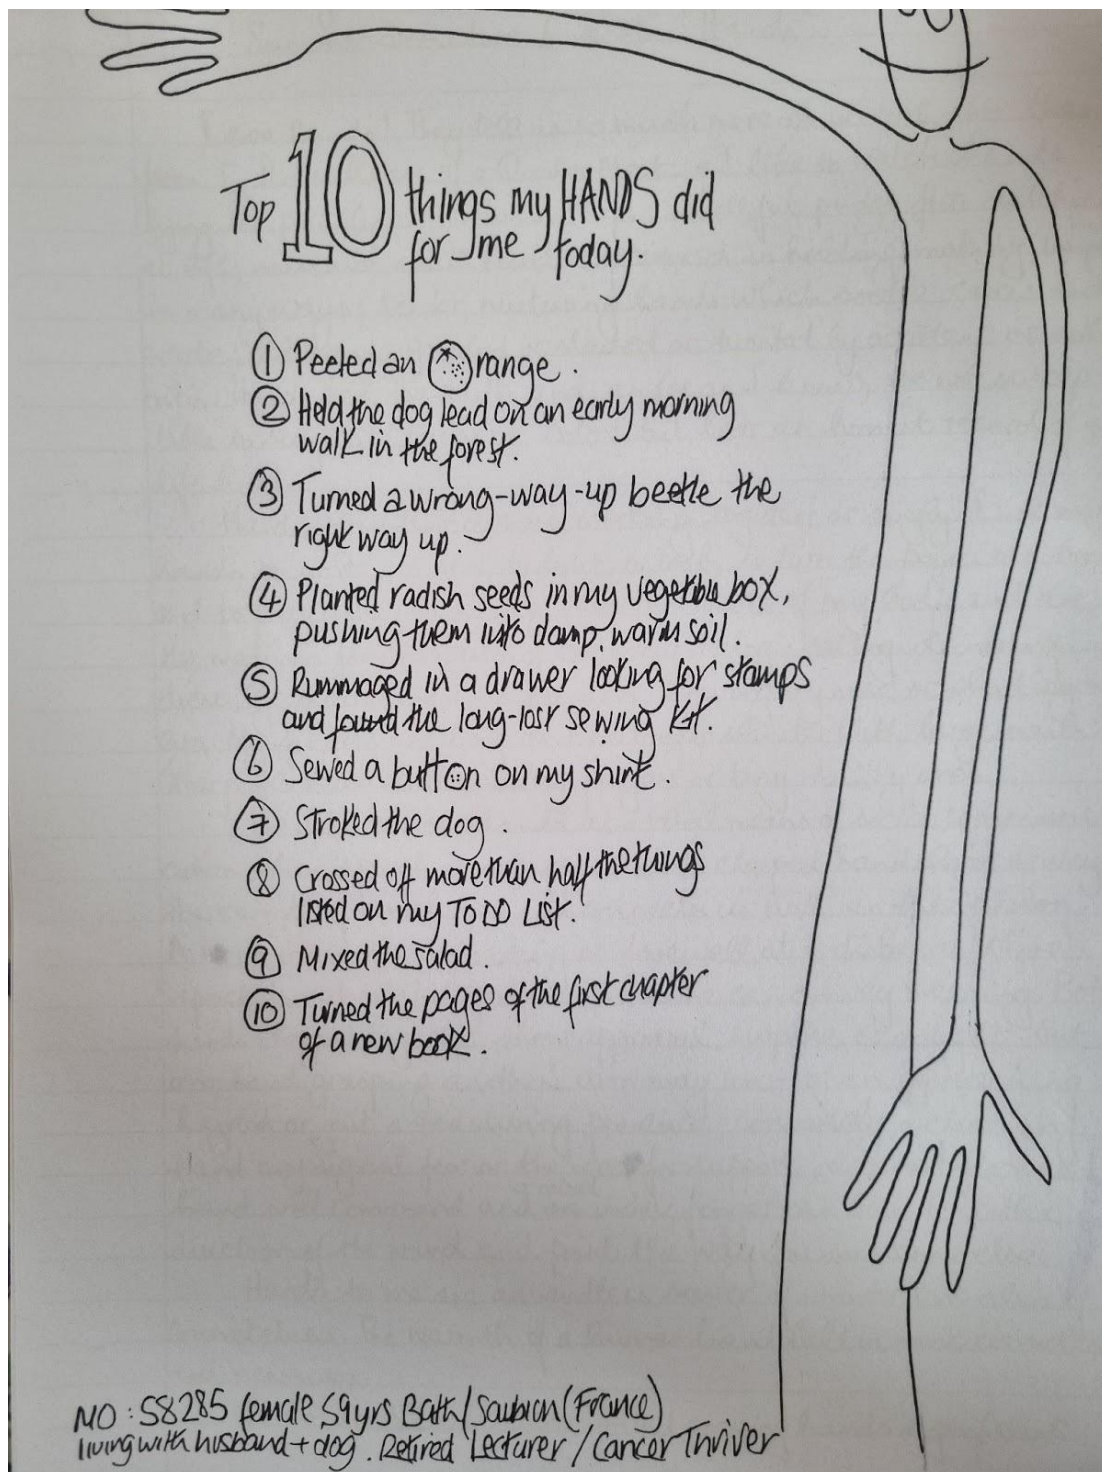 Top 10 things my HANDS did
for me today.
① Peeled an Orange.
② Held the dog lead on an early morning
walk in the forest.
③ Turned a wrong-way-up beetle the
right way up.
④ Planted radish seeds in my vegetable box,
pushing them into damp, warm soil.
⑤ Rummaged in a drawer looking for stamps
and found the long-lost sewing kit.
⑥ Sewed a button on my shirt.
⑦ Stroked the dog.
⑧ Crossed off more than half the things
listed on my TO DO List.
⑨ Mixed the salad.
⑩ Turned the pages of the first chapter
of a new book.
MO: S8285 female 59yrs Bath/Saubion (France)
living with husband + dog. Retired Lecturer / Cancer Thriver